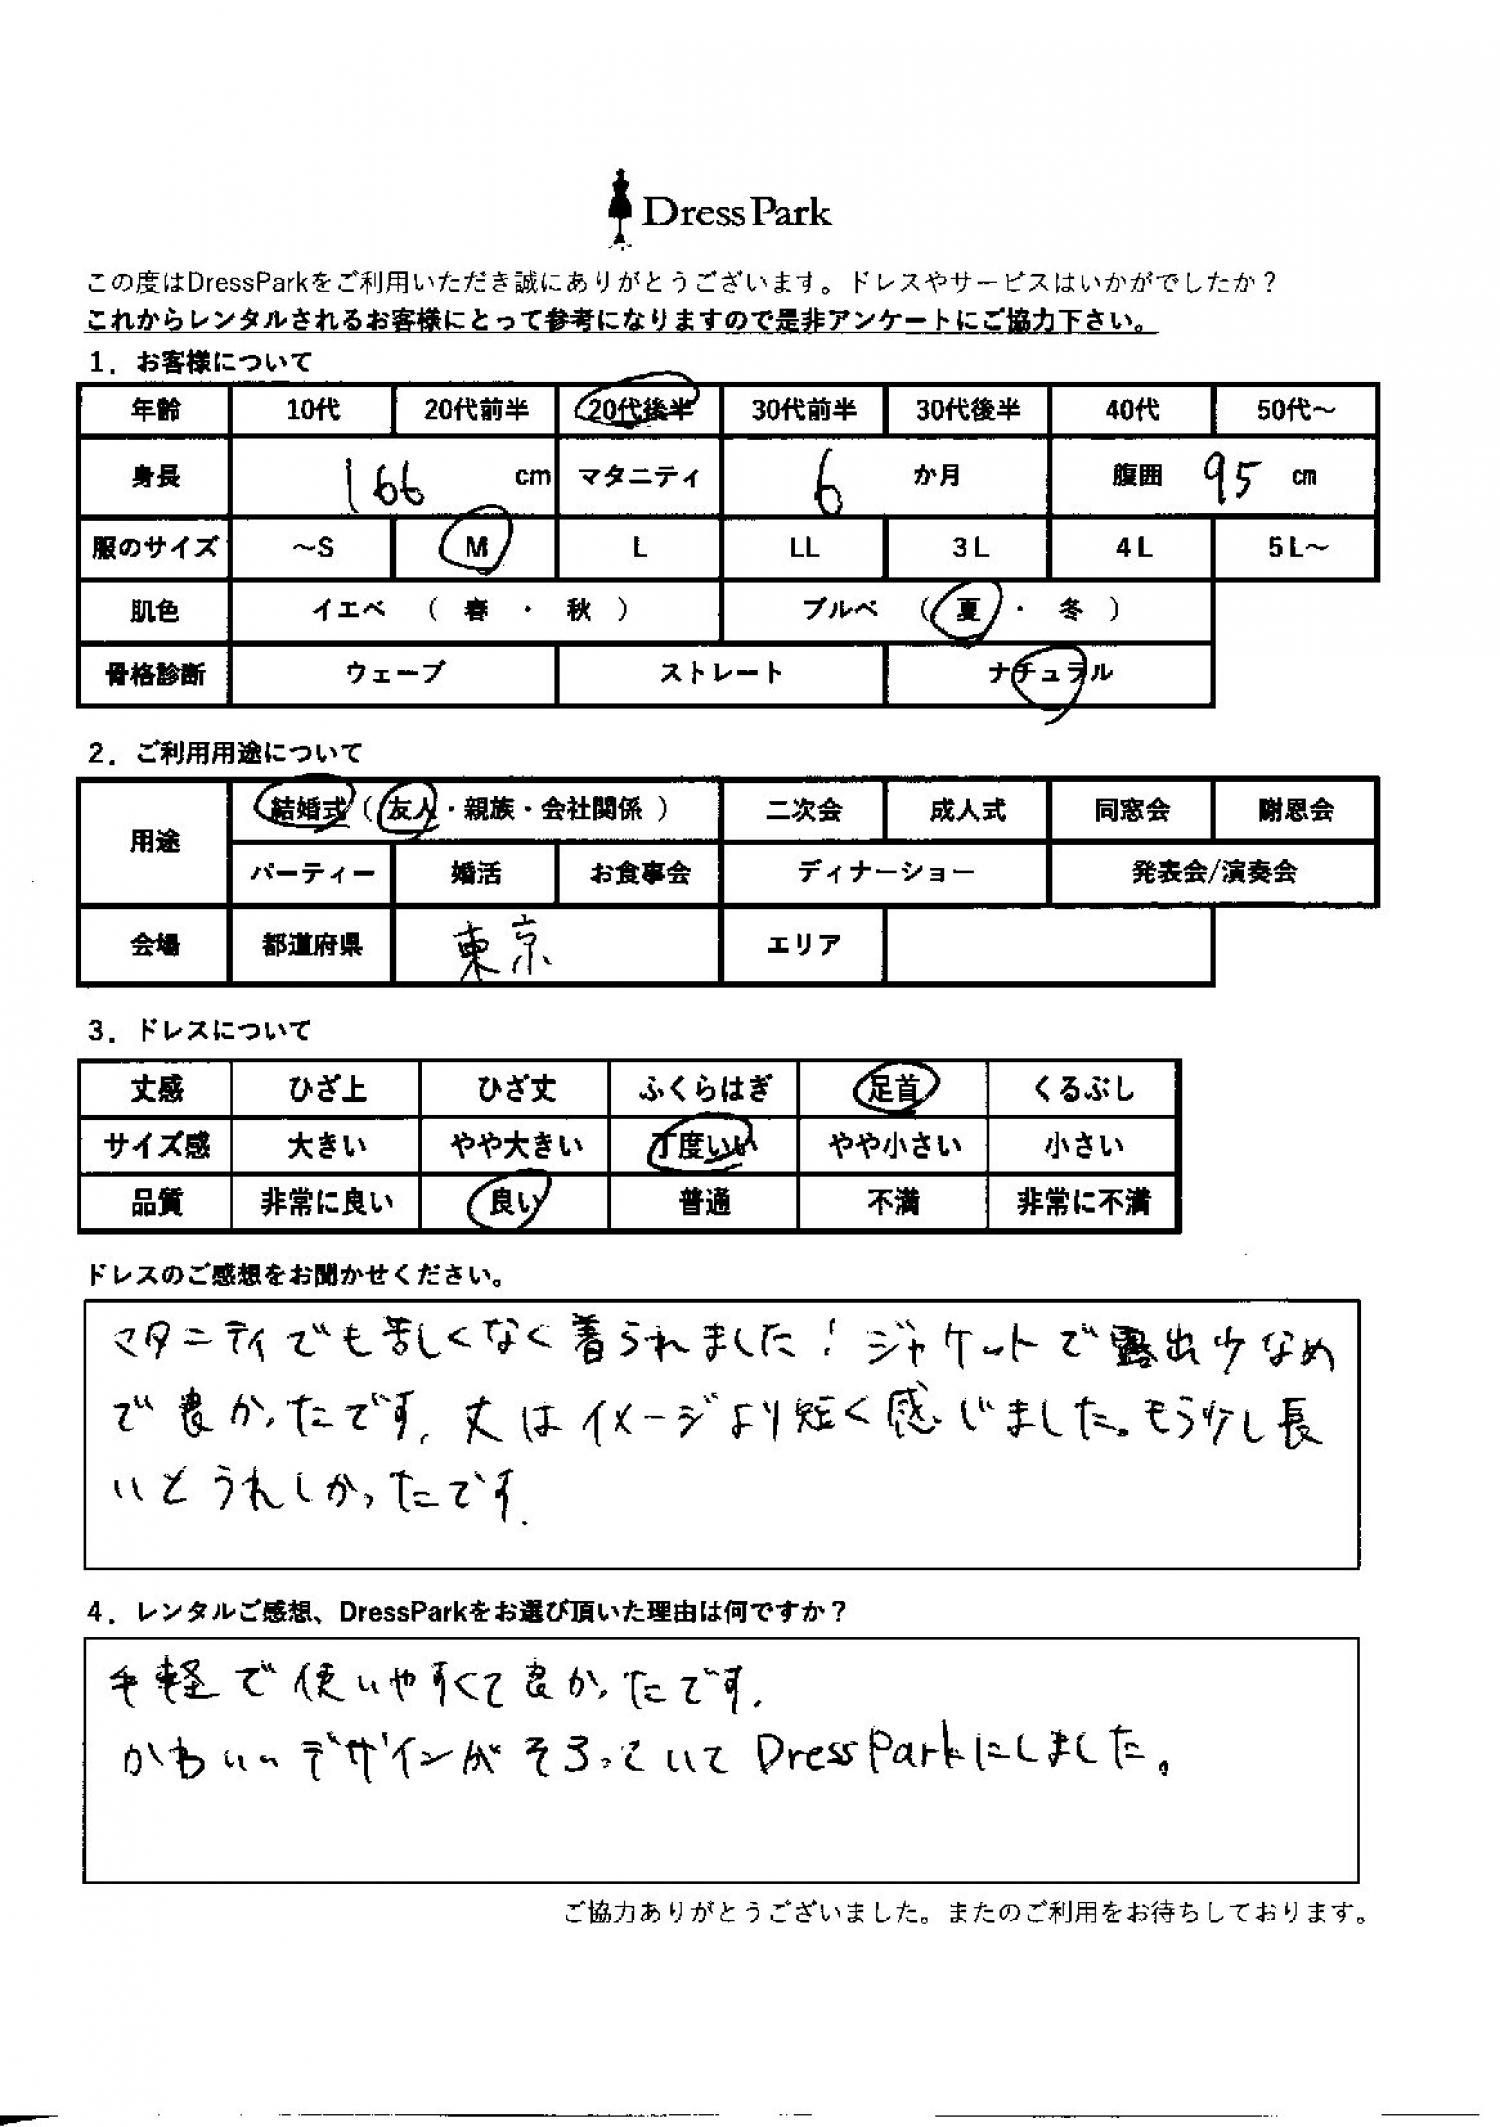 Dress Park
この度はDressParkをご利用いただき誠にありがとうございます。ドレスやサービスはいかがでしたか？
これからレンタルされるお客様にとって参考になりますので是非アンケートにご協力下さい。
1．お客様について
年齢 10代 20代前半 20代後半 30代前半 30代後半 40代 50代～
身長 166 cm マタニティ 6 か月 腹囲 95 cm
服のサイズ ～S M L LL 3L 4L 5L～
肌色 イエベ （ 春 ・ 秋 ） ブルベ （ 夏 ・ 冬 ）
骨格診断 ウェーブ ストレート ナチュラル
2．ご利用用途について
用途 結婚式（ 友人・親族・会社関係 ） 二次会 成人式 同窓会 謝恩会
パーティー 婚活 お食事会 ディナーショー 発表会/演奏会
会場 都道府県 東京 エリア
3．ドレスについて
丈感 ひざ上 ひざ丈 ふくらはぎ 足首 くるぶし
サイズ感 大きい やや大きい 丁度いい やや小さい 小さい
品質 非常に良い 良い 普通 不満 非常に不満
ドレスのご感想をお聞かせください。
マタニティでも苦しくなく着られました！ジャケットで露出少なめ
で良かったです。丈はイメージより短く感じました。もう少し長
いとうれしかったです。
4．レンタルご感想、DressParkをお選び頂いた理由は何ですか？
手軽で使いやすくて良かったです。
かわいいデザインがそろっていてDressParkにしました。
ご協力ありがとうございました。またのご利用をお待ちしております。